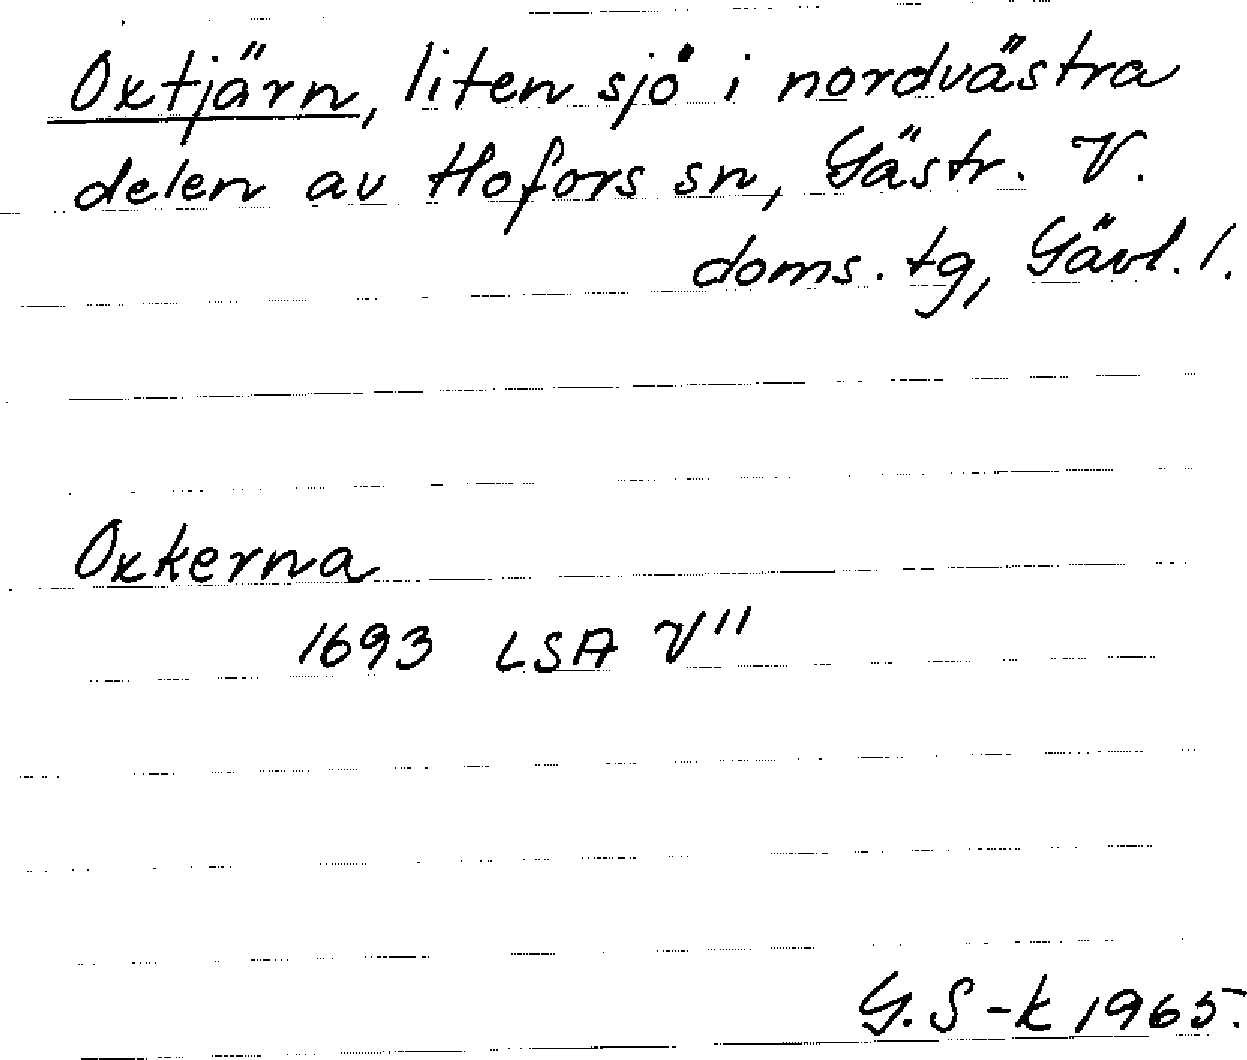 Oxtjärn, liten sjö i nordvästra
delen av Hofors sn, Gästr. V.
doms. tg, Gävl. l.
Oxkerna
1693 LSA V"
G. S-k 1965.